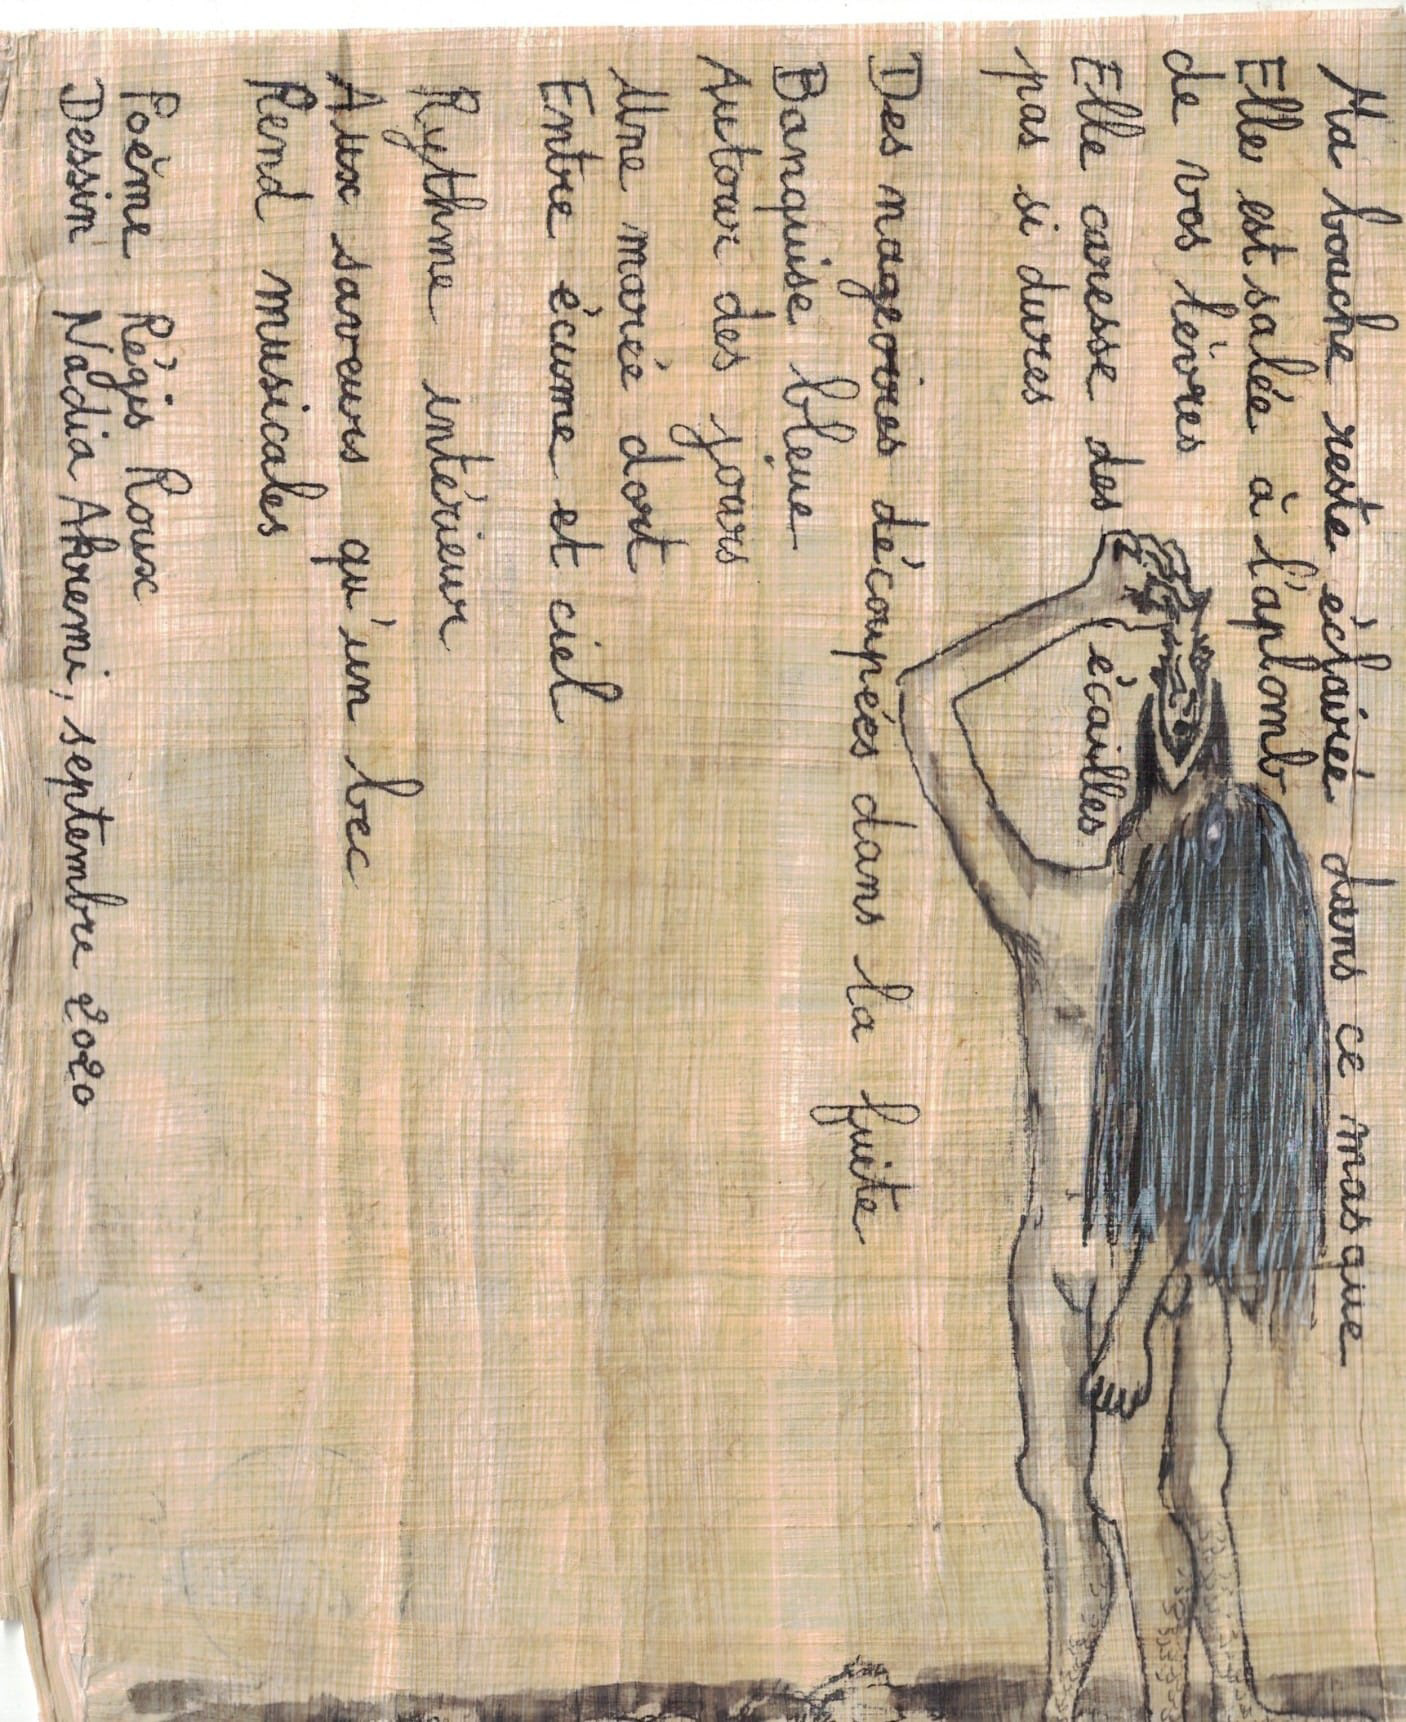 Ma bouche reste éclairée dans ce masque
Elle est salée à l'aplomb
de vos lèvres
Elle caresse des écailles
pas si dures
Des nageoires découpées dans la fuite
Banquise bleue
Autour des jours
Une marée dort
Entre écume et ciel
Rythme intérieur
Aux saveurs qu'un bec
Rend musicales
Poème Régis Roux
Dessin Nadia Akremi, septembre 2020